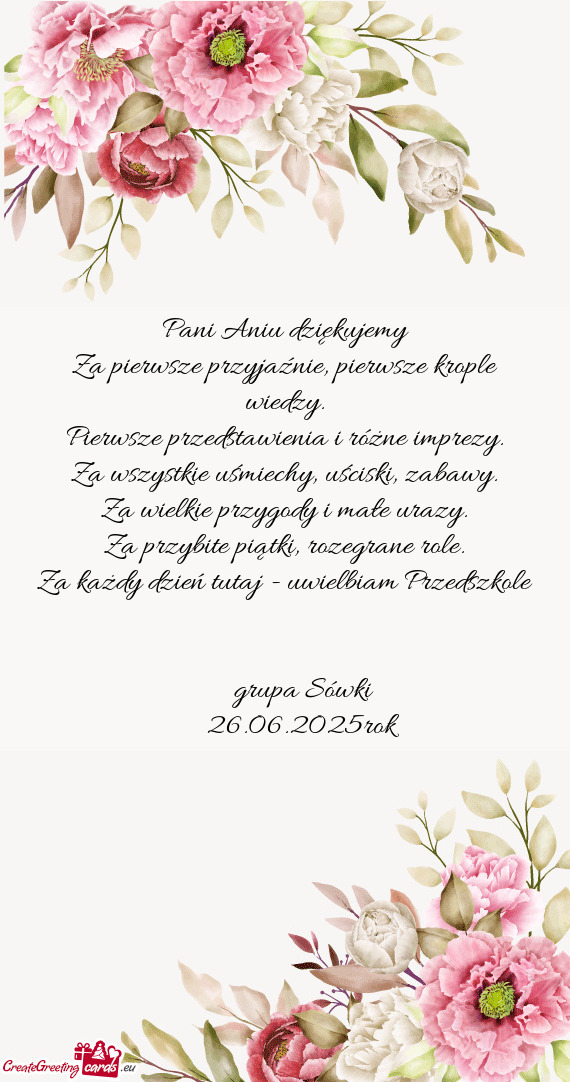 Pani Aniu dziękujemy
Za pierwsze przyjaźnie, pierwsze krople
wiedzy.
Pierwsze przedstawienia i różne imprezy.
Za wszystkie uśmiechy, uściski, zabawy.
Za wielkie przygody i małe urazy.
Za przybite piątki, rozegrane role.
Za każdy dzień tutaj - uwielbiam Przedszkole
grupa Sówki
26.06.2025rok
CreateGreeting cards .eu